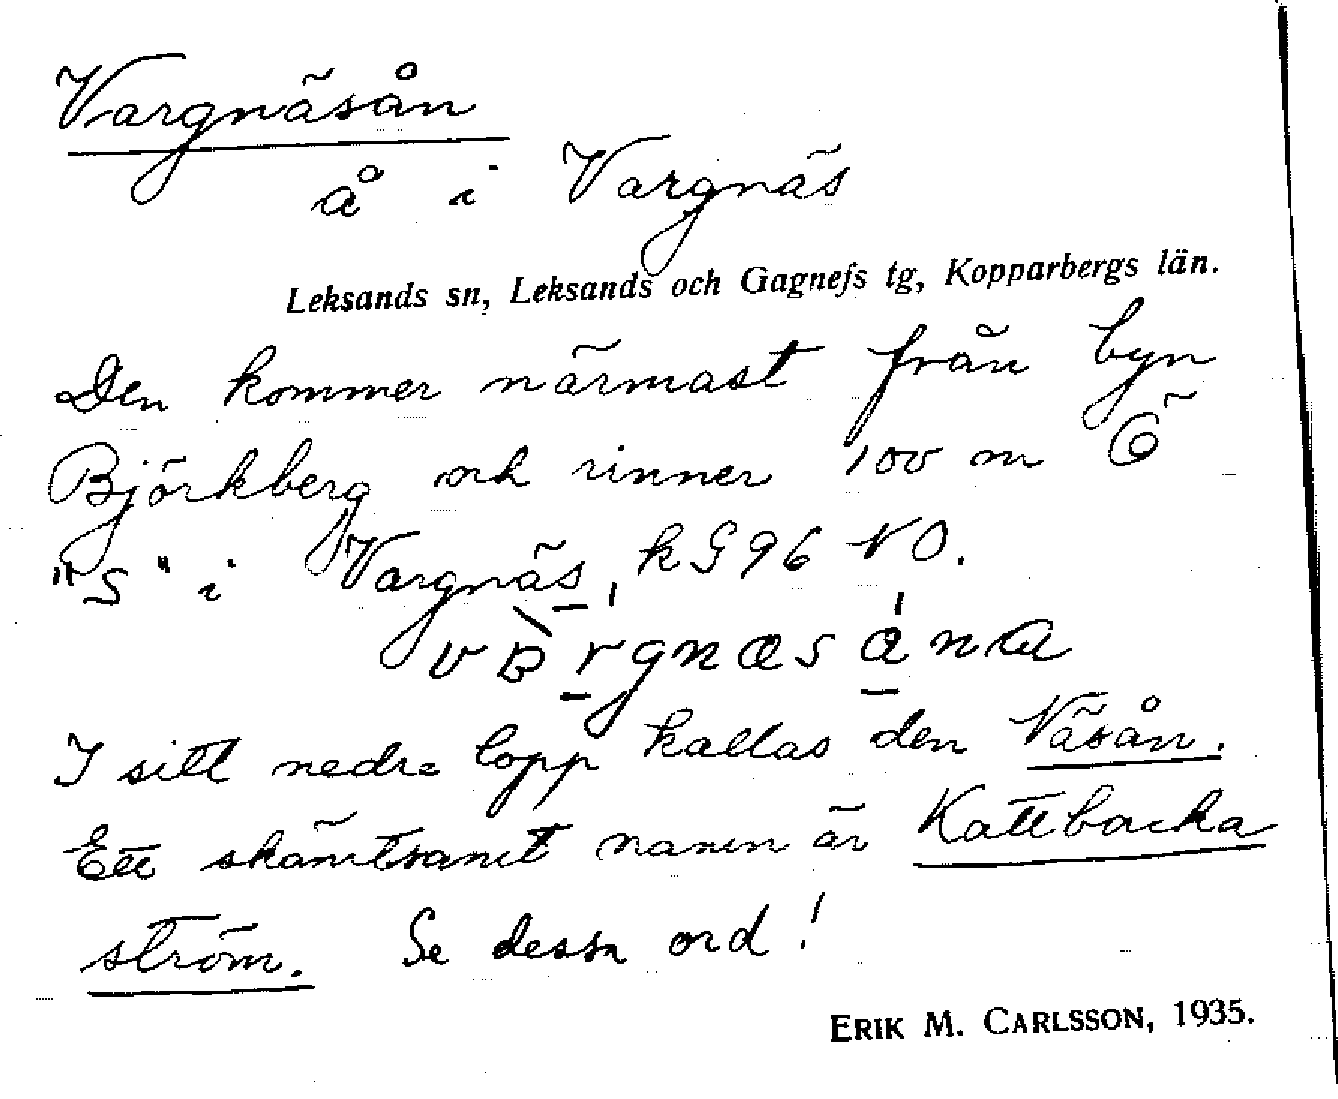 Vargnäsån
å i Vargnäs
Leksands sn, Leksands och Gagnefs tg, Kopparbergs län.
Den kommer närmast från byn
Björkberg och rinner 100 m Ö
"S" i Vargnäs, k G 96 NO.
I sitt nedre lopp kallas den Näsån.
Ett skämtsamt namn är Kattbacka
ström. Se dessa ord!
ERIK M. CARLSSON, 1935.